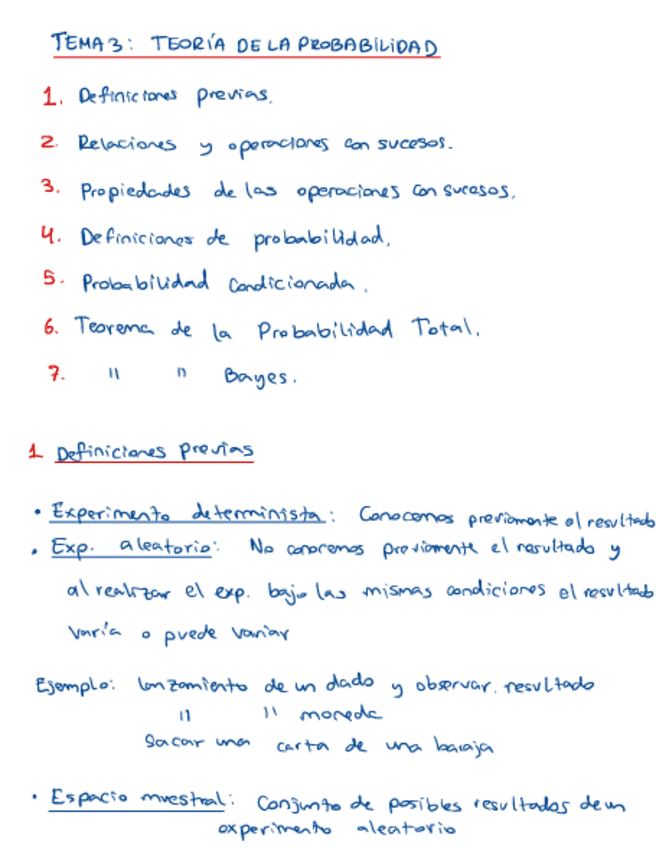 TEMA 3: TEORÍA DE LA PROBABILIDAD
1. Definiciones previas.
2. Relaciones y operaciones con sucesos.
3. Propiedades de las operaciones con sucesos.
4. Definiciones de probabilidad.
5. Probabilidad Condicionada.
6. Teorema de la Probabilidad Total.
7. " " Bayes.
1 Definiciones previas
• Experimento determinista: Conocemos previamente el resultado
• Exp. aleatorio: No conocemos previamente el resultado y
al realizar el exp. bajo las mismas condiciones el resultado
varía o puede variar
Ejemplo: lanzamiento de un dado y observar resultado
" " moneda
Sacar una carta de una baraja
• Espacio muestral: Conjunto de posibles resultados de un
experimento aleatorio